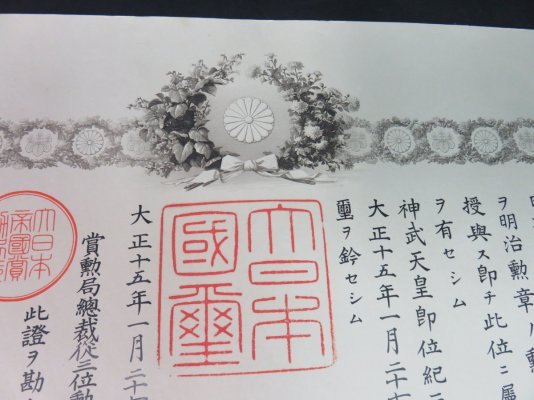 ヲ明治勲章ノ
授與ス卽チ此位ニ屬
ヲ有セシム
神武天皇卽位紀
大正十五年一月二十七
璽ヲ鈐セシム
大日本
國璽
大正十五年一月二十
賞勲局總裁從三位勲
此證ヲ勘
大日本
帝國賞